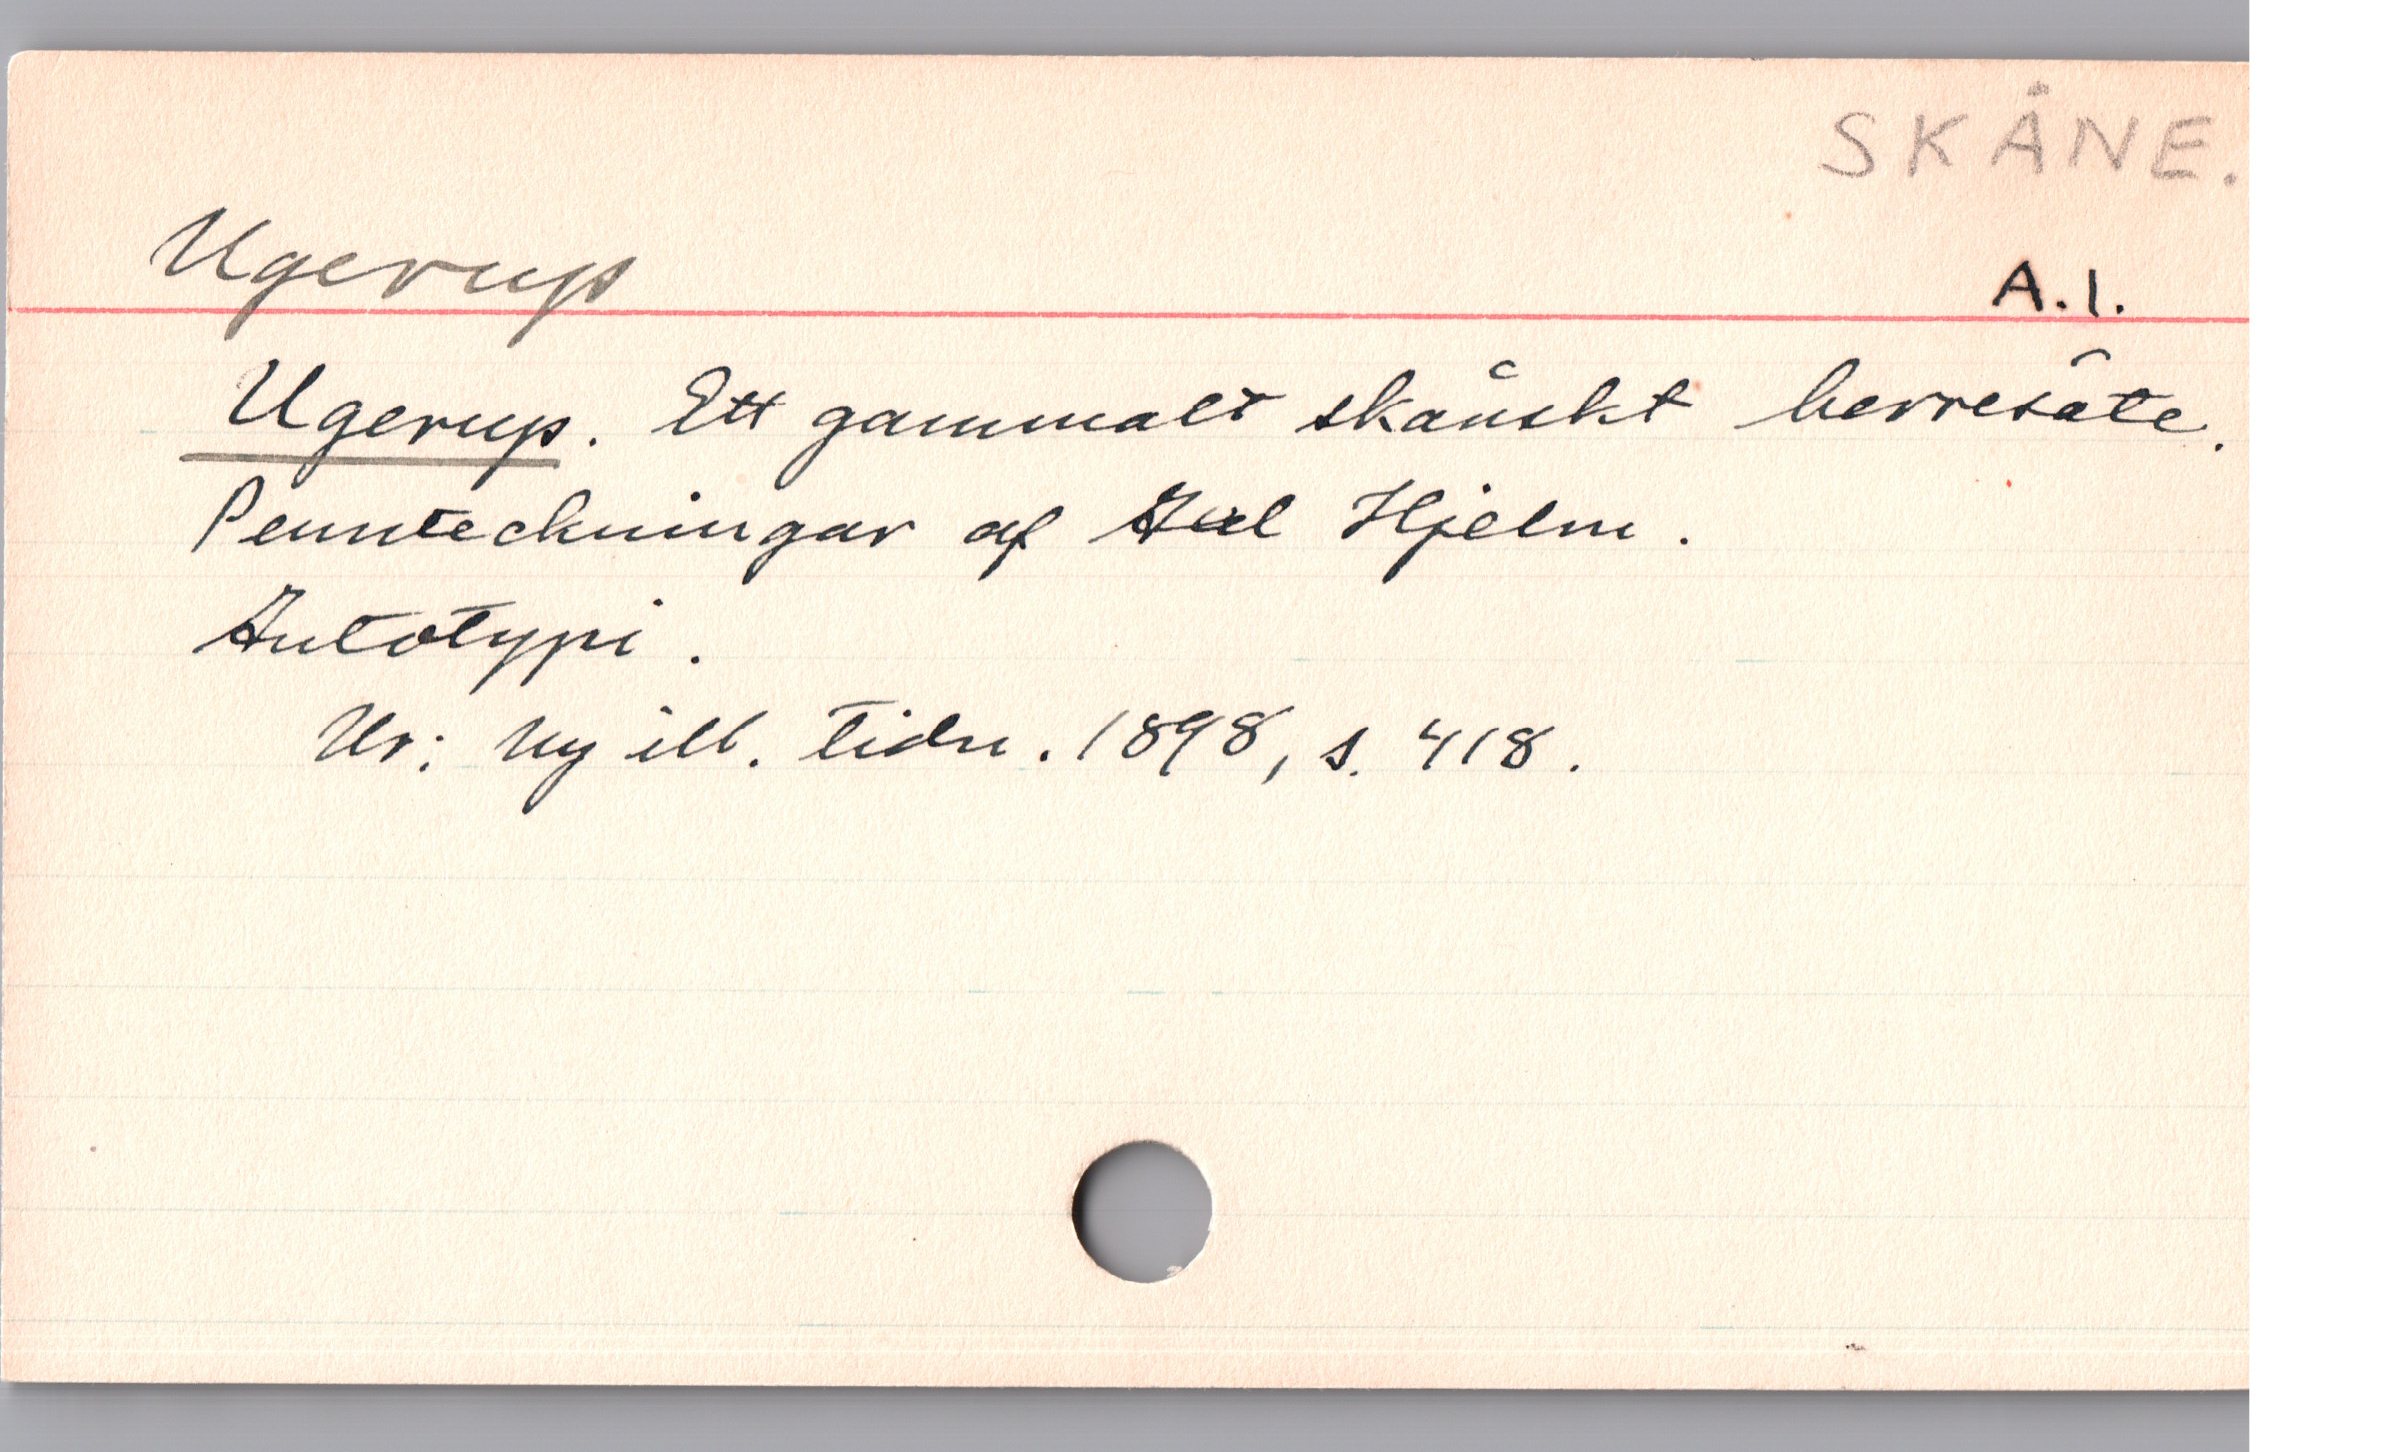 SKÅNE.
Ugerup
A.1.
Ugerup. Ett gammalt skånskt herresäte.
Pennteckningar af Axel Hjelm.
Autotypi.
Ur: Ny ill. tidn. 1898, s. 418.